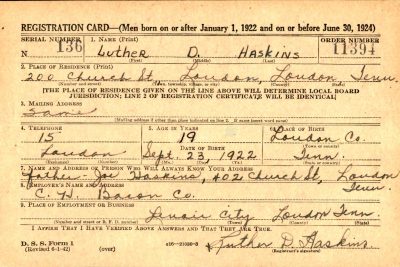 REGISTRATION CARD—(Men born on or after January 1, 1922 and on or before June 30, 1924)
SERIAL NUMBER 1. NAME (Print) ORDER NUMBER
N 136 Luther D. Haskins 11394
(First) (Middle) (Last)
2. PLACE OF RESIDENCE (Print)
200 Church St. Loudon, Loudon Tenn.
[THE PLACE OF RESIDENCE GIVEN ON THE LINE ABOVE WILL DETERMINE LOCAL BOARD
JURISDICTION; LINE 2 OF REGISTRATION CERTIFICATE WILL BE IDENTICAL]
3. MAILING ADDRESS
Same
[Mailing address if other than place indicated on line 2. If same insert word same]
4. TELEPHONE 5. AGE IN YEARS 6. PLACE OF BIRTH
15 19 Loudon Co.
DATE OF BIRTH
Loudon Sept. 23, 1922 Tenn
7. NAME AND ADDRESS OF PERSON WHO WILL ALWAYS KNOW YOUR ADDRESS
Father- Joe Haskins, 402 Church St, Loudon
Tenn.
8. EMPLOYER'S NAME AND ADDRESS
C. H. Bacon Co.
9. PLACE OF EMPLOYMENT OR BUSINESS
Lenoir City Loudon Tenn.
(Number and street or R. F. D. number) (Town) (County) (State)
I AFFIRM THAT I HAVE VERIFIED ABOVE ANSWERS AND THAT THEY ARE TRUE.
D. S. S. Form 1
(Revised 6-1-42) (over) Luther D. Haskins
(Registrant's signature)